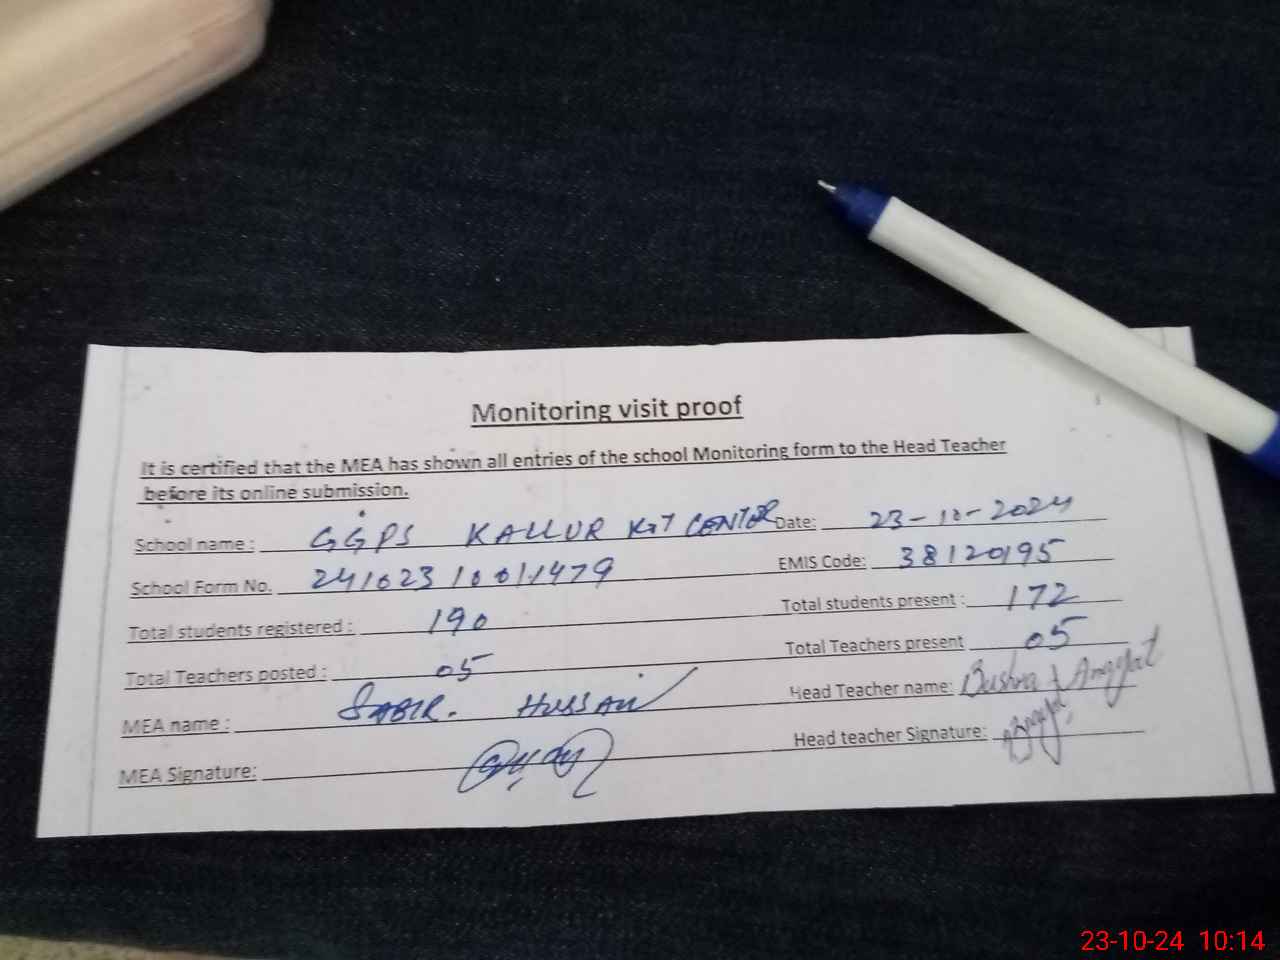 Monitoring visit proof
It is certified that the MEA has shown all entries of the school Monitoring form to the Head Teacher
before its online submission.
School name : GGPS KALLUR KOT CENTOR Date: 23-10-2024
School Form No. 241023 10011479 EMIS Code: 38120195
Total students registered : 190 Total students present : 172
Total Teachers posted : 05 Total Teachers present 05
MEA name : SABIR. HUSSAIN Head Teacher name: Bushra
MEA Signature: Head teacher Signature:
23-10-24 10:14